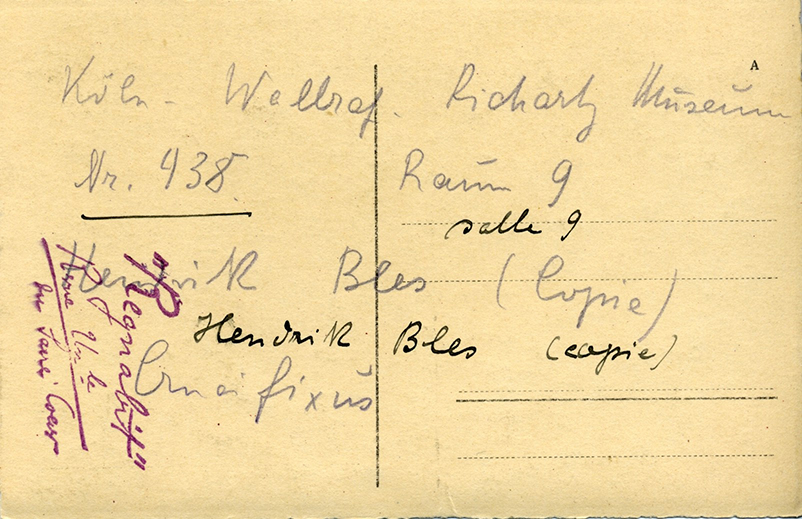 A
Köln - Wallraf. Richartz Museum
Nr. 438. Raum 9
salle 9
Hendrik Bles (Copie)
Hendrik Bles (copie)
Crucifixus
"Regnabit"
Revue Un. le
du Sacré Coeur